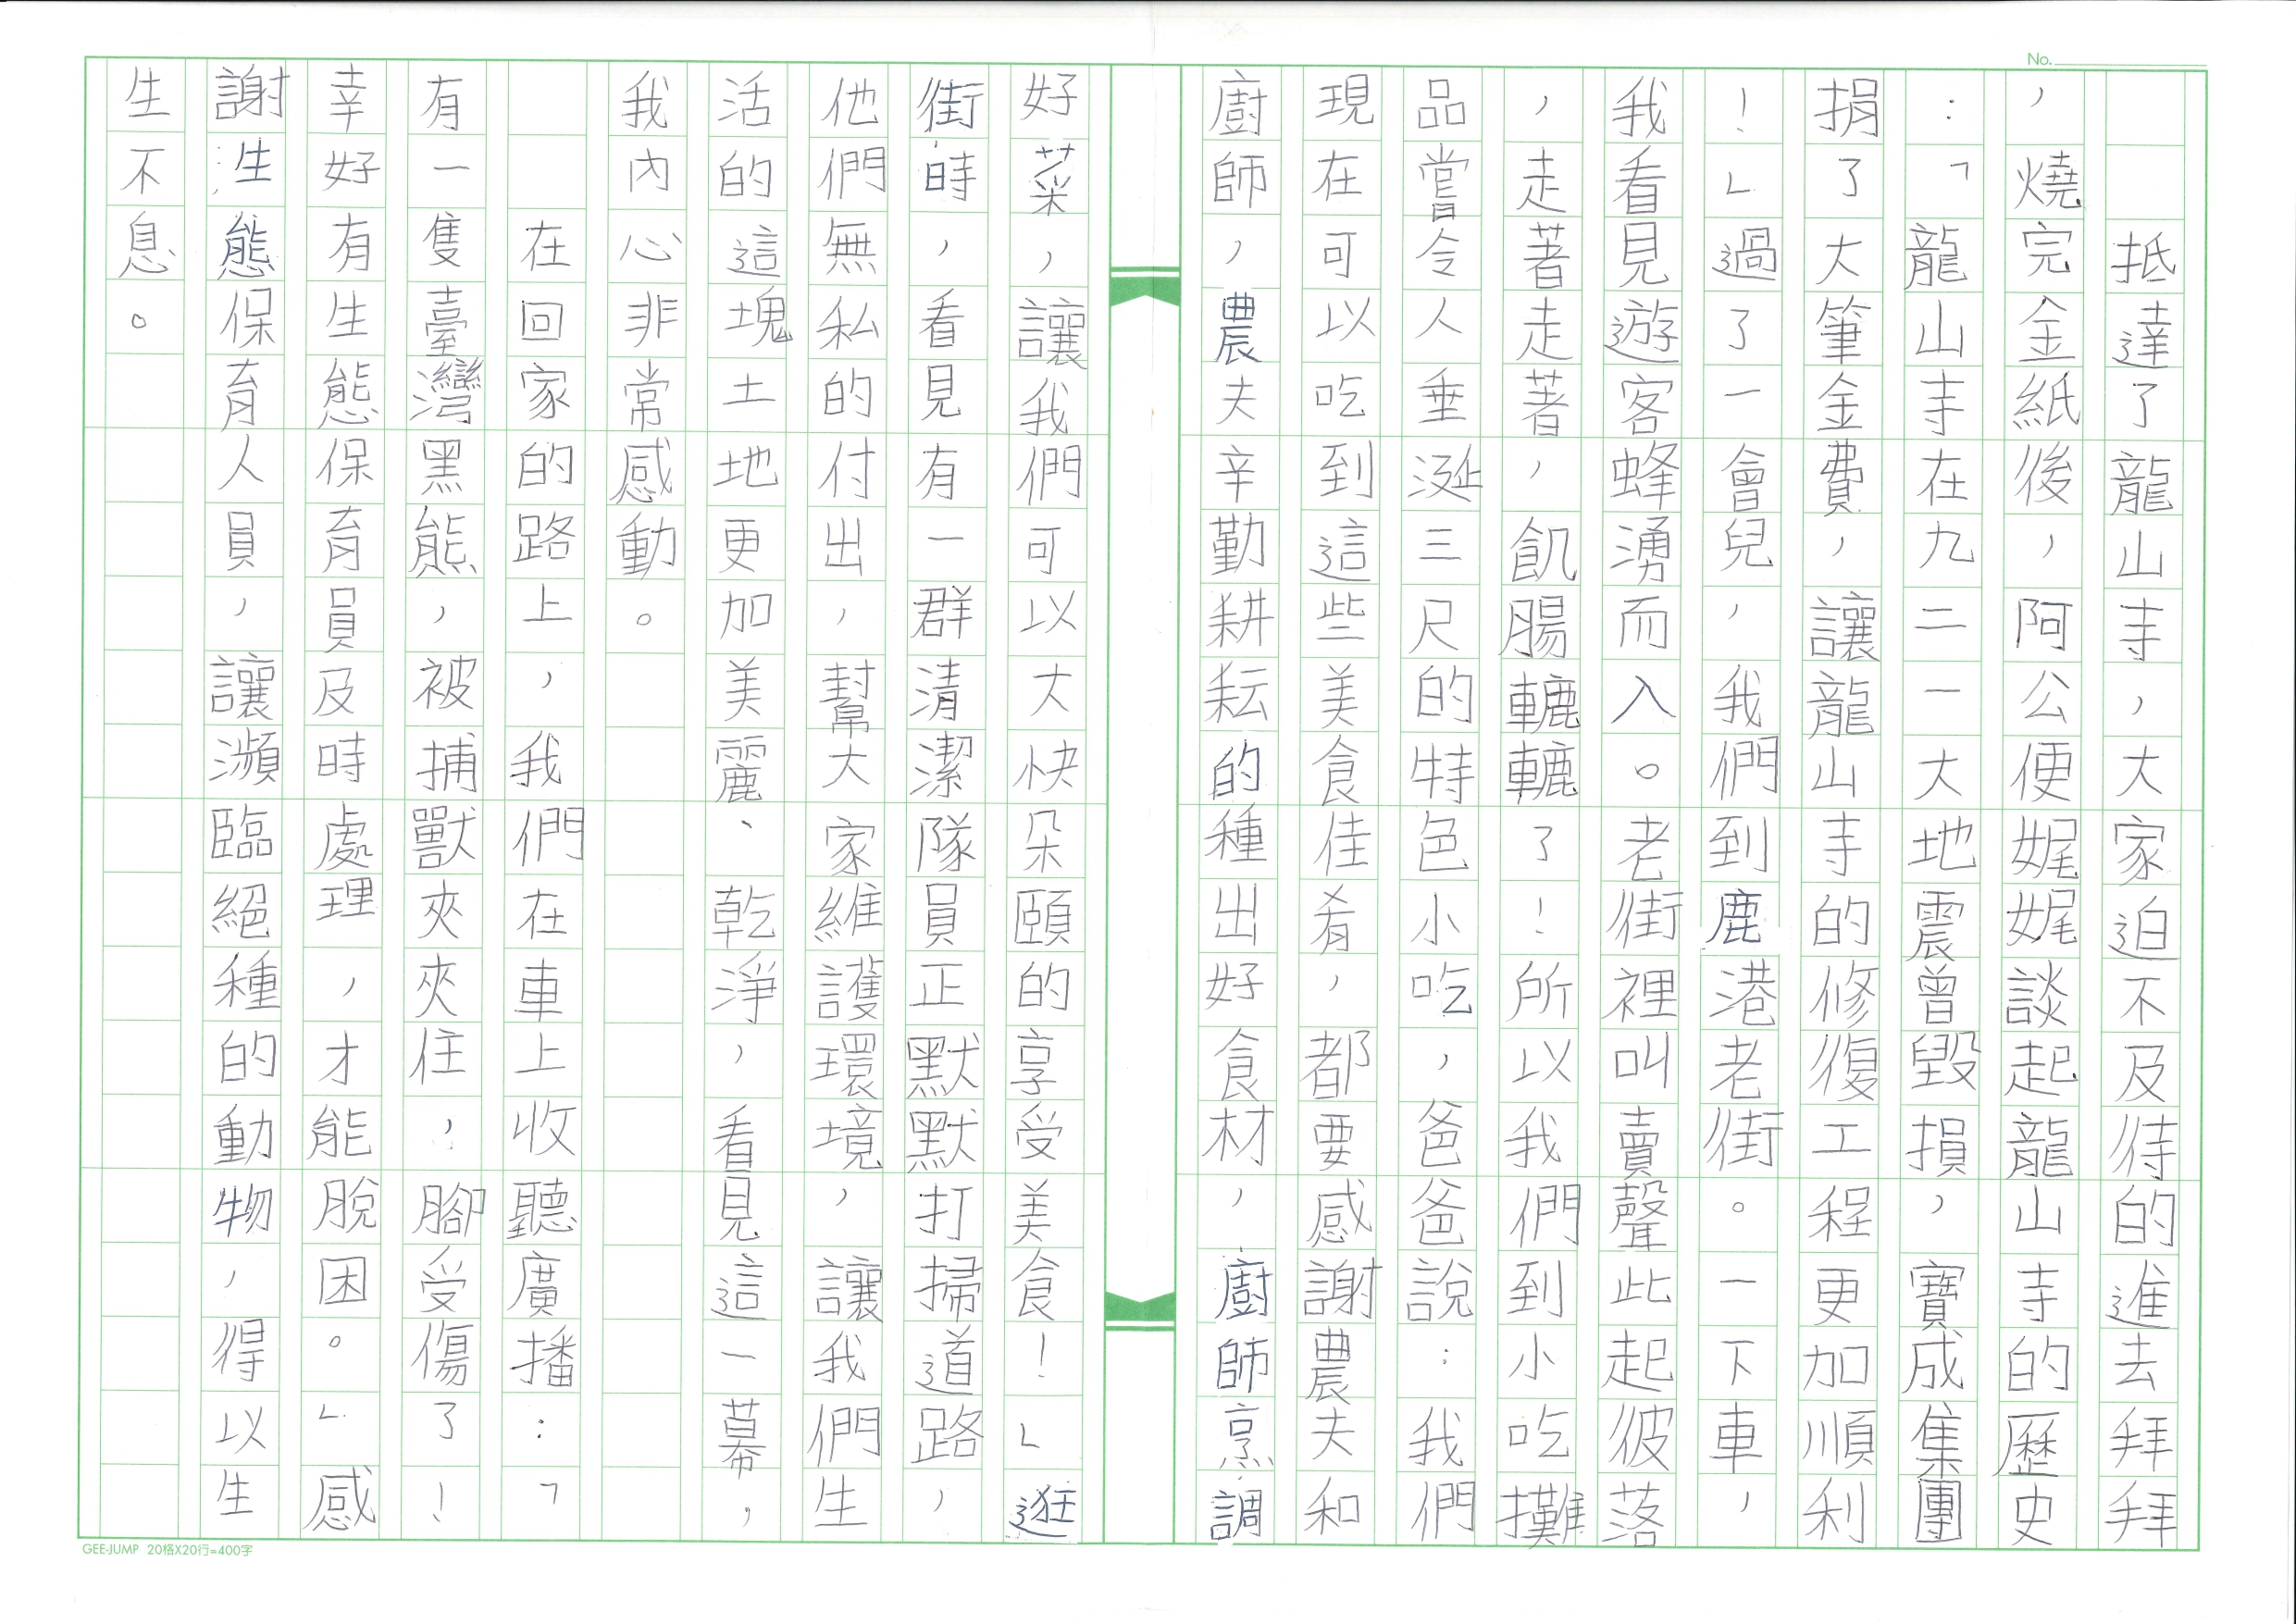 No.
抵達了龍山寺，大家迫不及待的進去拜拜
，燒完金紙後，阿公便娓娓談起龍山寺的歷史
：「龍山寺在九二一大地震曾毀損，寶成集團
捐了大筆金費，讓龍山寺的修復工程更加順利
！」過了一會兒，我們到鹿港老街。一下車，
我看見遊客蜂湧而入。老街裡叫賣聲此起彼落
，走著走著，飢腸轆轆了！所以我們到小吃攤
品嘗令人垂涎三尺的特色小吃，爸爸說：我們
現在可以吃到這些美食佳肴，都要感謝農夫和
廚師，農夫辛勤耕耘的種出好食材，廚師烹調
好菜，讓我們可以大快朵頤的享受美食！」逛
街時，看見有一群清潔隊員正默默打掃道路，
他們無私的付出，幫大家維護環境，讓我們生
活的這塊土地更加美麗、乾淨，看見這一幕，
我內心非常感動。
在回家的路上，我們在車上收聽廣播：「
有一隻臺灣黑熊，被捕獸夾夾住，腳受傷了！
幸好有生態保育員及時處理，才能脫困。」感
謝生態保育人員，讓瀕臨絕種的動物，得以生
生不息。
GEE-JUMP 20格X20行=400字